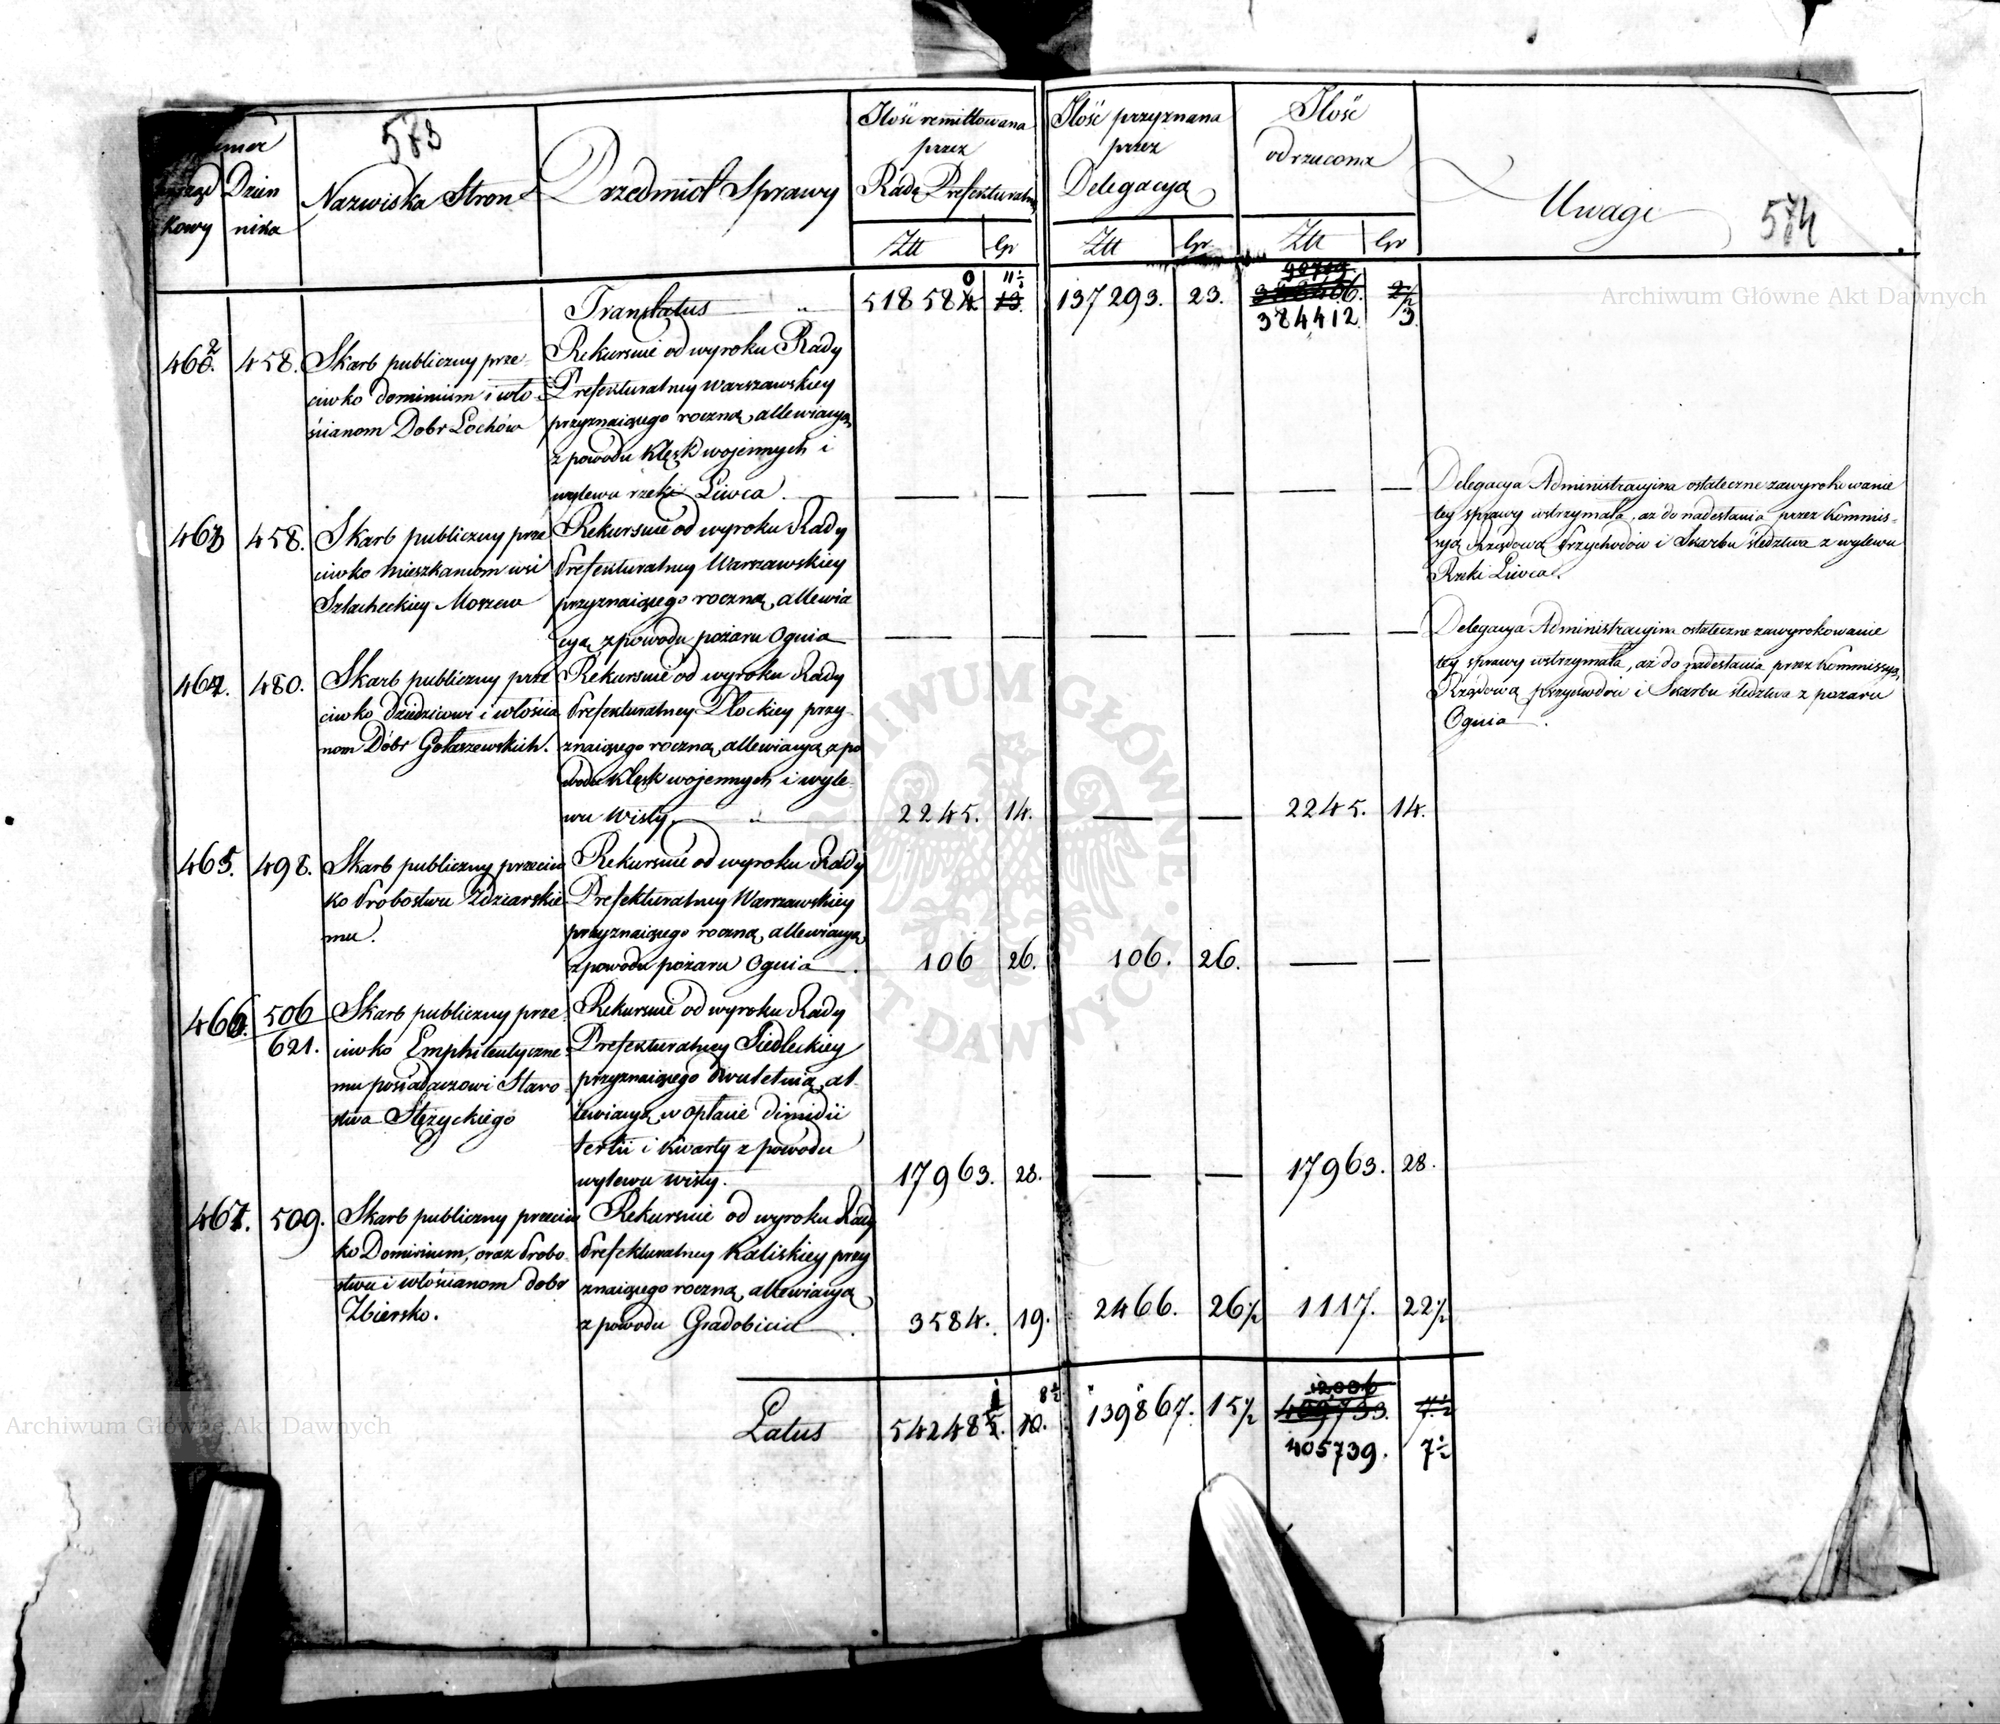 573
Numer
Porząd
kowy
Dzien
nika
Nazwiska Stron
Przedmiot Sprawy
Ilość remittowana
przez
Radę Prefekturalną
Ztt
Gr
Ilość przyznana
przez
Delegacyą
Ztt
Gr
Ilość
odrzucona
Ztt
Gr
Uwagi
574
Translatus
518584 13.
0 11½
137293. 23.
384412. 3.
462. 458.
Skarb publiczny prze-
ciwko dominium i wło-
ścianom Dobr Łochów
Rekursuie od wyroku Rady
Prefekturalney Warszawskiey
przyznaiącego roczną allewiacyą
z powodu klęsk wojennych i
wylewu rzeki Liwca.
Delegacya Administracyina ostateczne zawyrokowanie
tey sprawy wstrzymała, aż do nadesłania przez Kommis-
syą Rządową Przychodów i Skarbu śledztwa z wylewu
Rzeki Liwca.
463 458.
Skarb publiczny prze
ciwko mieszkańcom wsi
Szlacheckiey Morzew
Rekursuie od wyroku Rady
Prefekturalney Warszawskiey
przyznaiącego roczną allewia
cyą z powodu pożaru Ognia
Delegacya Administracyina ostateczne zawyrokowanie
tey sprawy wstrzymała, aż do nadesłania przez Kommissyą
Rządową przychodów i Skarbu śledztwa z pożaru
Ognia.
464. 480.
Skarb publiczny prze
ciwko dziedzicowi i włościa
nom Dóbr Gołaszewskich.
Rekursuie od wyroku Rady
Prefekturalney Płockiey przy-
znaiącego roczną allewiacyą z po
wodu klęsk wojennych i wyle-
wu Wisły
2245. 14.
2245. 14.
465. 498.
Skarb publiczny przeciw
ko Probostwu Zdziarskie
mu.
Rekursuie od wyroku Rady
Prefekturalney Warszawskiey
przyznaiącego roczną allewiacyą
z powodu pożaru Ognia.
106 26.
106. 26.
466. 506
621.
Skarb publiczny prze-
ciwko Emphiteutyczne-
mu posiadaczowi Staro-
stwa Stężyckiego
Rekursuie od wyroku Rady
Prefekturalney Siedleckiey
przyznaiącego dwuletnią al-
lewiacyą w opłacie dimidii
tertii i kwarty z powodu
wylewu wisły.
17963. 28.
17963. 28.
467. 509.
Skarb publiczny przeciw
ko Dominium, oraz Probo-
stwu i włościanom dobr
Zbiersko.
Rekursuie od wyroku Rady
Prefekturalney Kaliskiey przy
znaiącego roczną allewiacyą
z powodu Gradobicia.
3584. 19.
2466. 26½
1117. 22½
Latus
542485. 10.
1 8½
139867. 15½
409733. 7½
405739. 7½
Archiwum Główne Akt Dawnych
Archiwum Główne Akt Dawnych
ARCHIWUM GŁÓWNE AKT DAWNYCH